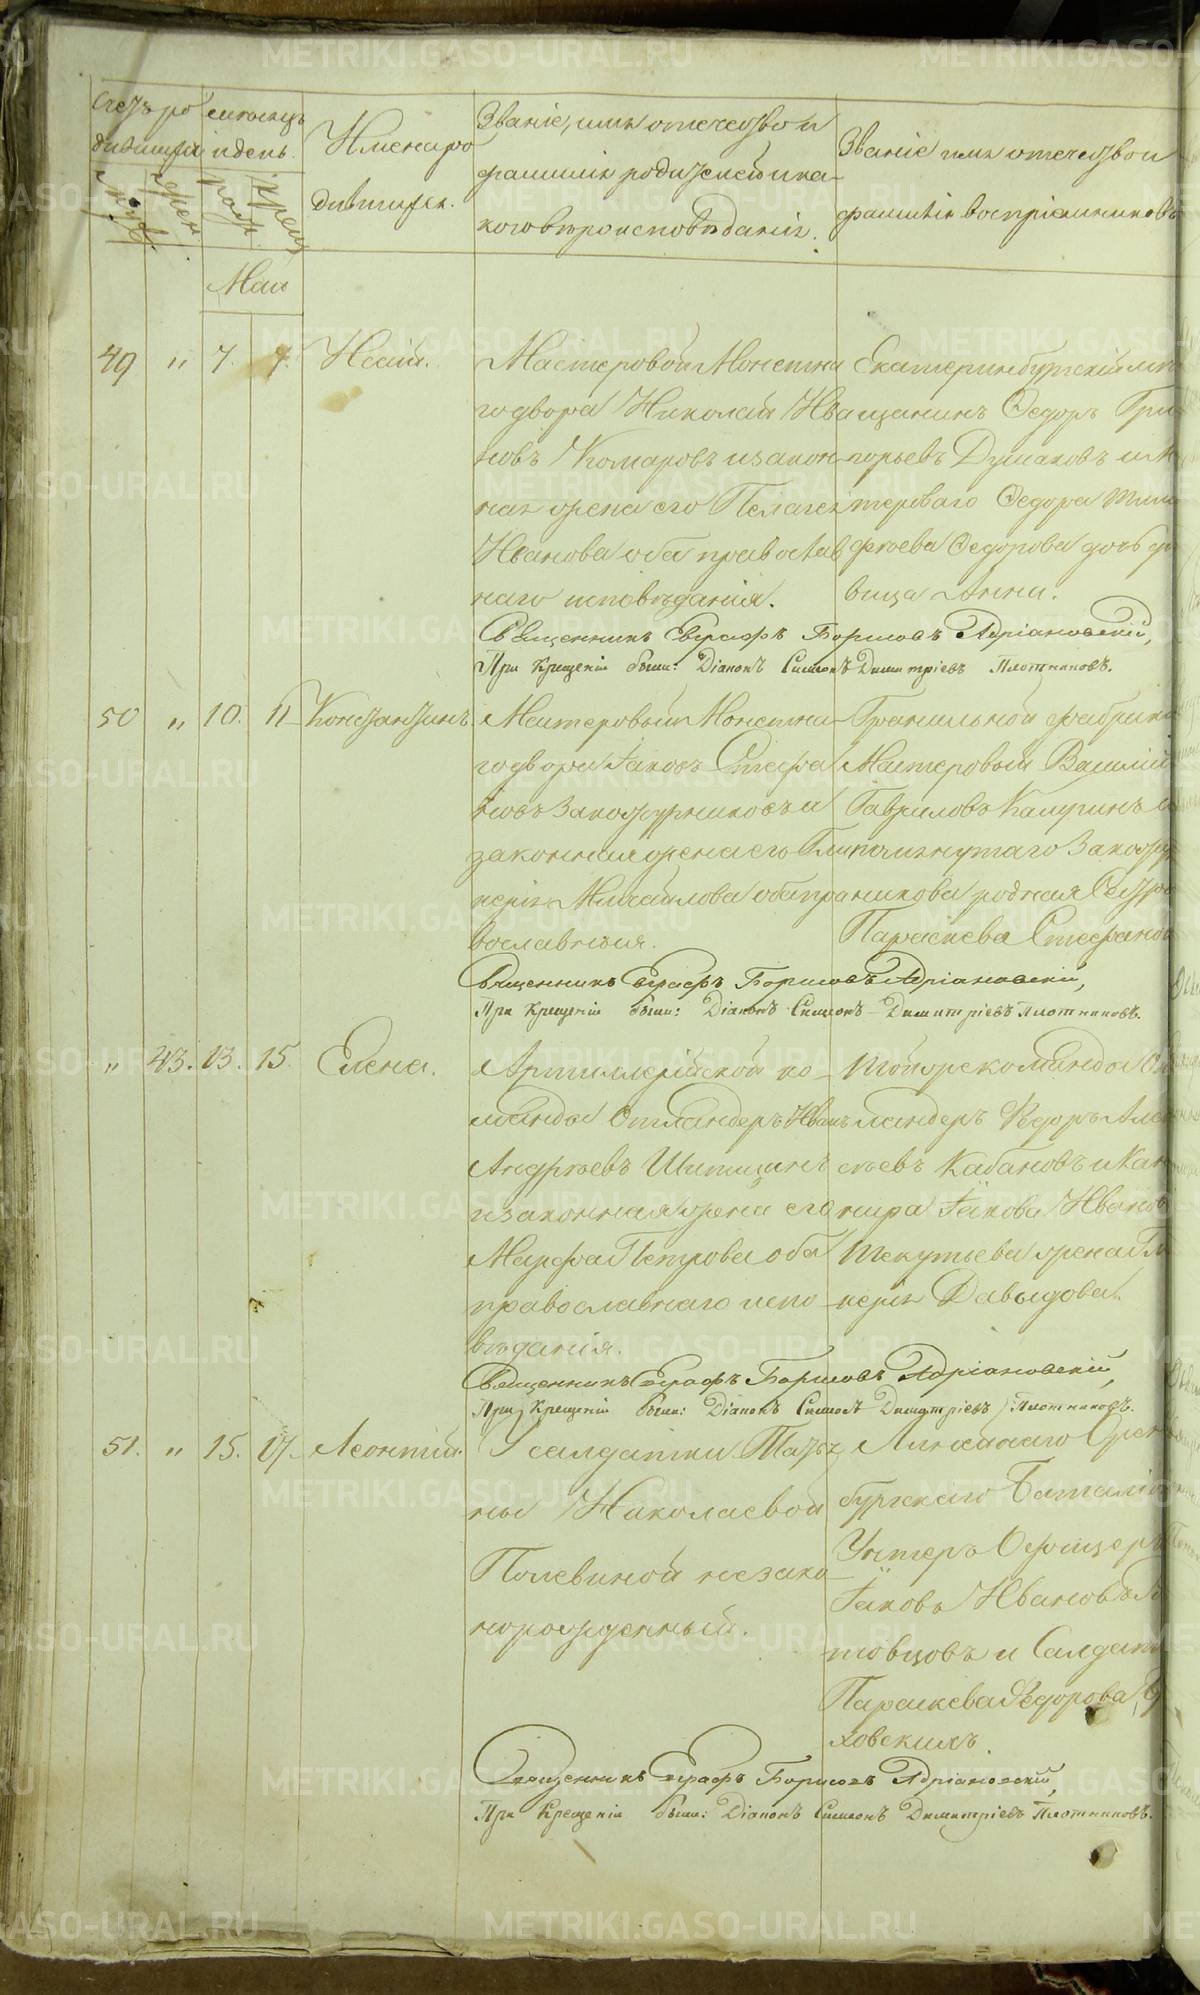 Счетъ ро
дившихся
муж.
жен.
мѣсяцъ
и день.
рож.
крещ.
Имена ро
дившихъ.
Званіе, имя отечество и
фамилія родителей и ка-
кого вѣроисповѣданія.
Званіе имя отечество и
фамилія воспріемниковъ
Маія
49 " 7. 7. Исаій.
Мастеровой Монетна
го двора Николай Ива
новъ Комаровъ и закон-
ная жена его Пелагея
Иванова оба православ
наго исповѣданія.
Екатеринбургскій мѣ
щанинъ Ѳедоръ Гри
горьевъ Душаковъ и
терового Ѳедора Тим
фѣева Ѳедорова дочь
вица Анна.
Священникъ Евграфъ Борисовъ Адріановскій,
При Крещеніи были: Діаконъ Симеонъ Димитріевъ Плотниковъ.
50 " 10. 11 Константинъ
Мастеровый Монетна-
го двора Іаковъ Стефа
новъ Закожурниковъ и
законная жена его Гли
керія Михайлова оба пра
вославныя.
Гранильной фабрики
Мастеровый Василій
Гавриловъ Калугинъ и
помянутаго Закожур
никова родная Сестра
Параскева Стефанова
Священникъ Евграфъ Борисовъ Адріановскій,
При Крещеніи были: Діаконъ Симеонъ Димитріевъ Плотниковъ.
" 43. 13. 15. Елена.
Артиллерійской ко-
манды Отландеръ Иванъ
Андреевъ Шипицинъ
и законная жена его
Марфа Петрова оба
православнаго испо-
вѣданія.
Той же команды
ландеръ Ѳедоръ Але
сѣевъ Кабановъ и Кан
нира Іакова Иванова
Текутьева жена Гли
керія Давыдова.
Священникъ Евграфъ Борисовъ Адріановскій,
При Крещеніи были: Діаконъ Симеонъ Димитріевъ Плотниковъ.
51. " 15. 17. Леонтій.
У салдатки Татья
ны Николаевой
Полевиной незако
норожденный.
Линейнаго Орен
бургскаго Баталіо
Унтеръ Офицеръ
Іаковъ Ивановъ
товцовъ и Салдат
Параскева Ѳедорова
ховскихъ.
Священникъ Евграфъ Борисовъ Адріановскій,
При Крещеніи были: Діаконъ Симеонъ Димитріевъ Плотниковъ.
METRIKI.GASO-URAL.RU